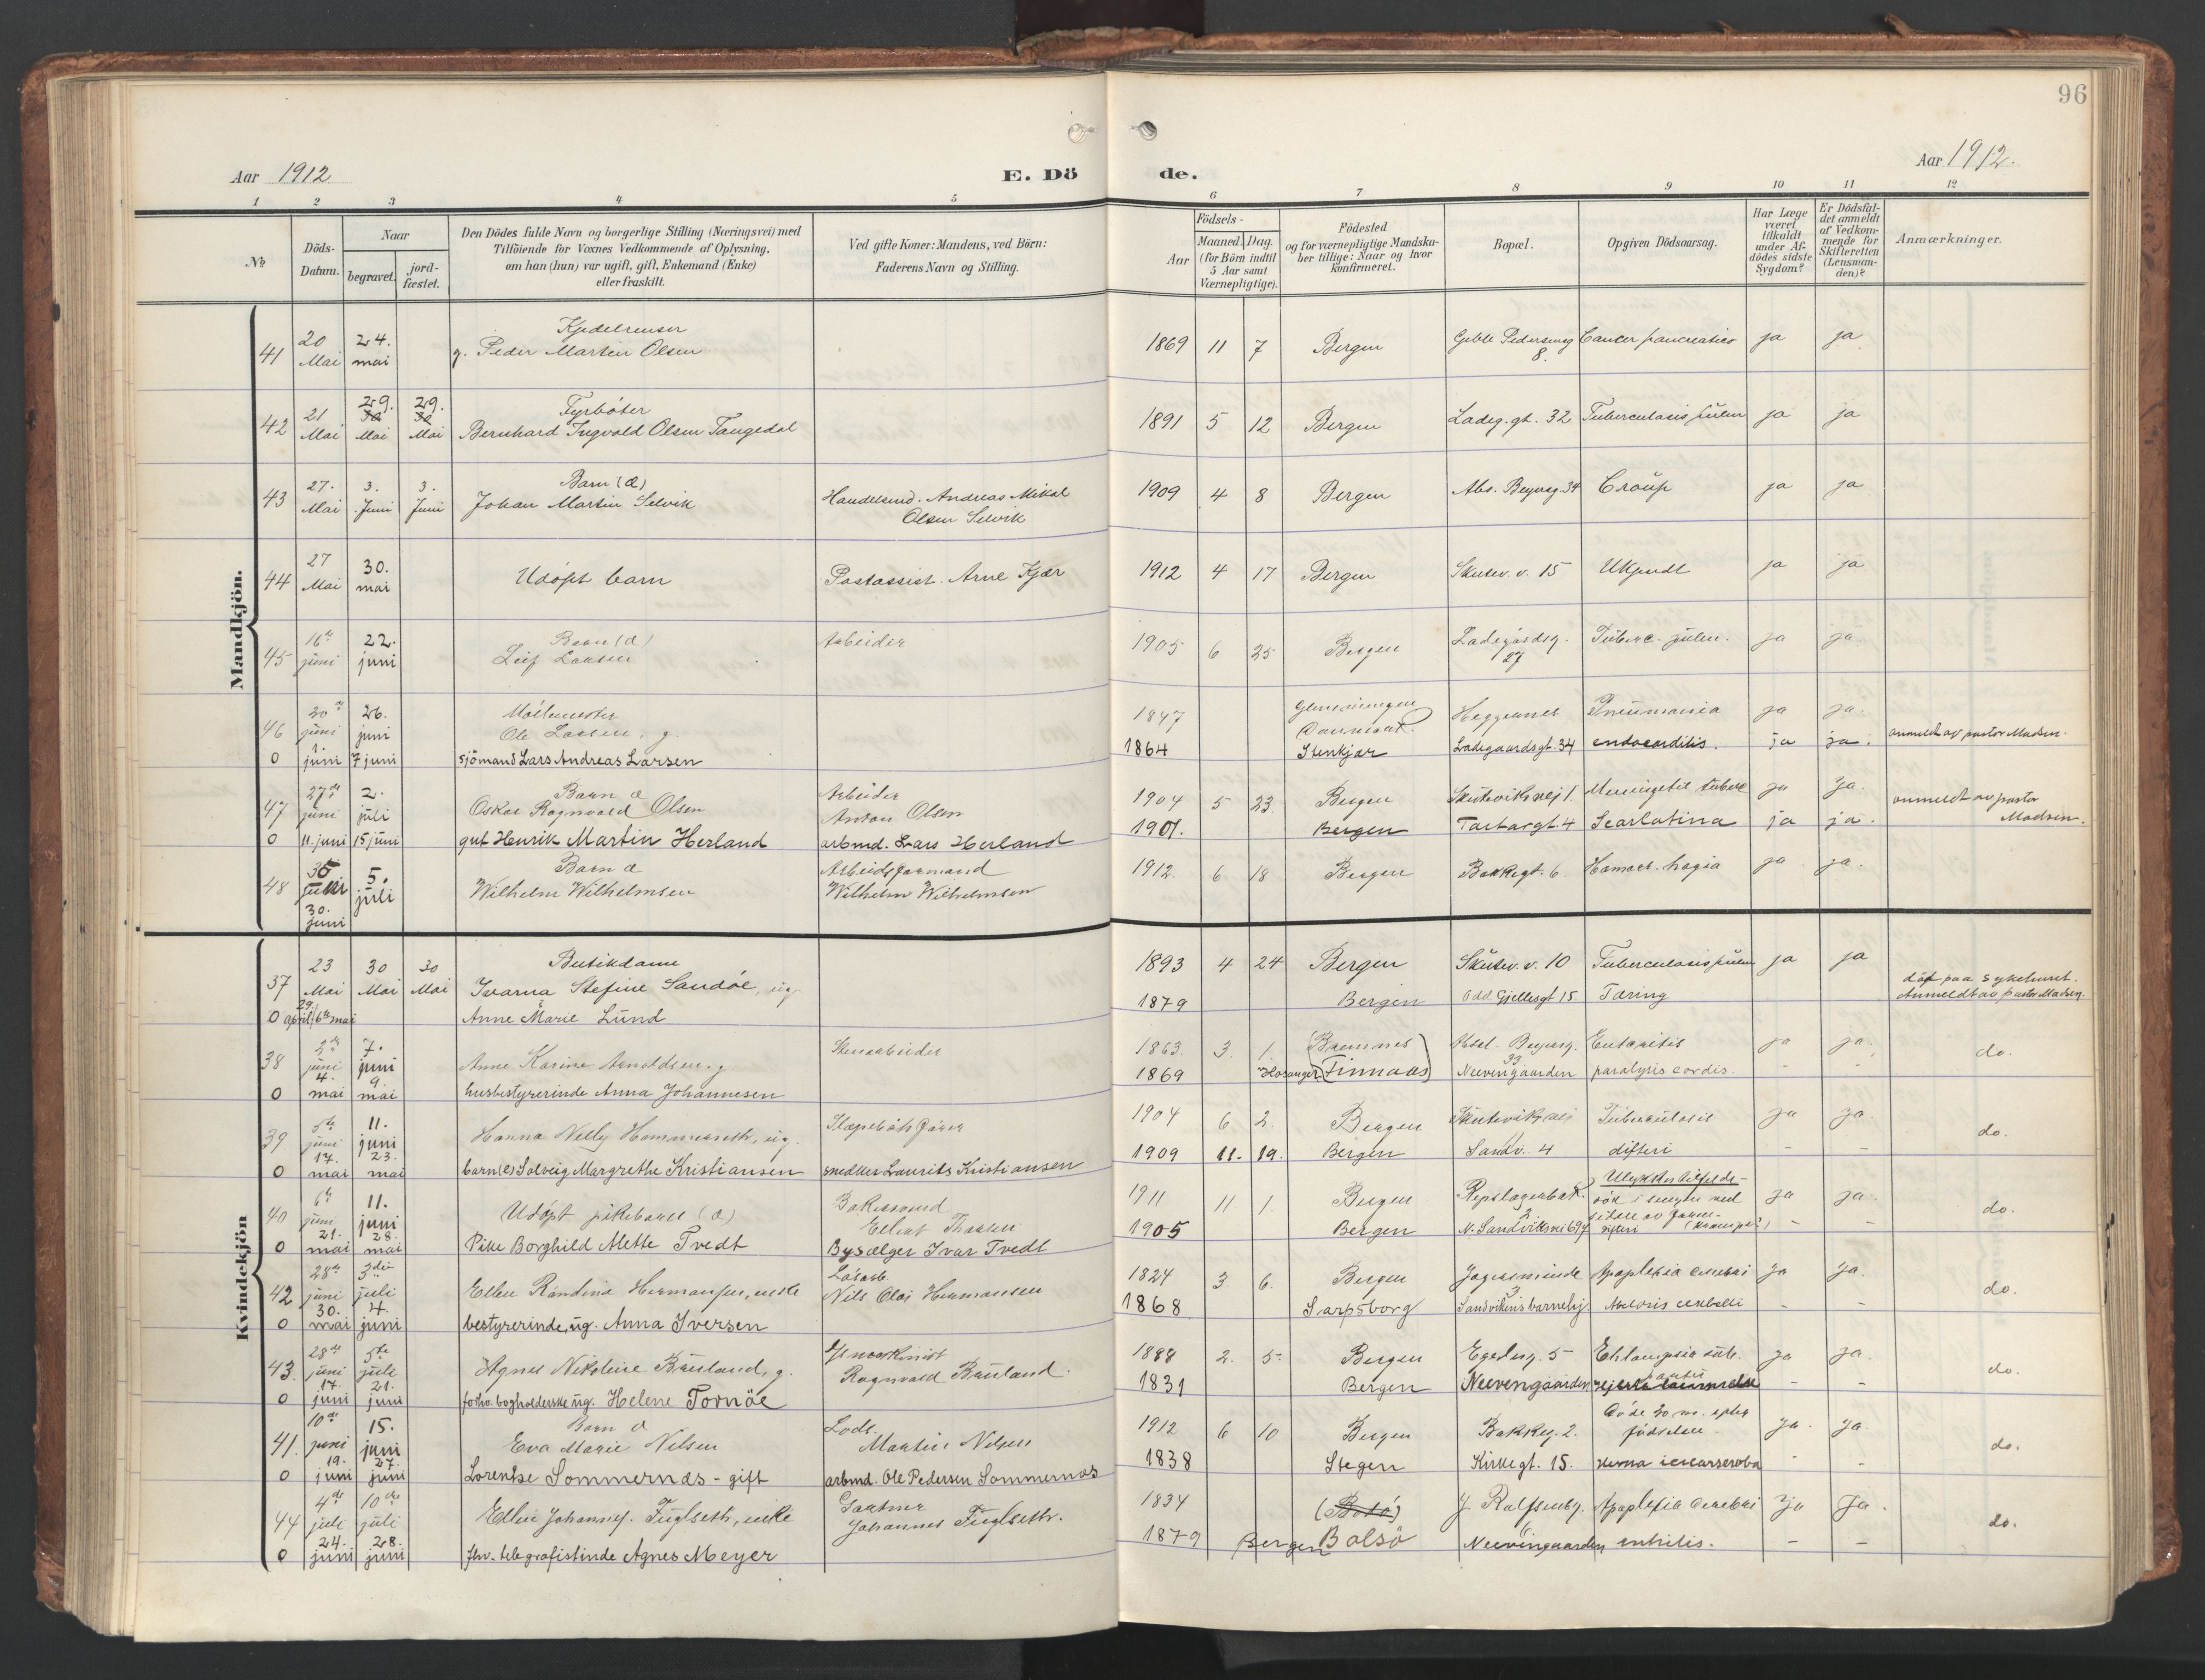 96
Aar 1912
E. Dö
de.
Aar 1912.
1 2 3 4 5 6 7 8 9 10 11 12
No
Döds-Datum.
Naar
begravet.
jordfæstet.
Den Dödes fulde Navn og borgerlige Stilling (Næringsvei) med
Tilföiende for Voxnes Vedkommende af Oplysning,
om han (hun) var ugift, gift, Enkemand (Enke)
eller fraskilt.
Ved gifte Koner: Mandens, ved Börn:
Faderens Navn og Stilling.
Födsels-
Aar
Maaned. Dag.
(for Börn indtil
5 Aar samt
Værnepligtige).
Födested
og for værnepligtige Mandska-
ber tillige: Naar og hvor
konfirmeret.
Bopæl.
Opgiven Dödsaarsag.
Har Læge
været
tilkaldt
under Af-
dödes sidste
Sygdom?
Er Dödsfal-
det anmeldt
af Vedkom-
mende for
Skifteretten
(Lensman-
den)?
Anmærkninger.
Mandkjön.
41 20 Mai 24. mai Kjedelrenser g. Peder Martin Olsen 1869 11 7 Bergen Geble Pedersensg 8. Cancer pancreatico ja ja
42 21 Mai 29. 30 Mai 29. 30 Mai Fyrböter Bernhard Ingvald Olsen Taugedal 1891 5 12 Bergen Ladeg.gt. 32 Tuberculosis pulm ja ja
43 27. Mai 3. Juni 3. Juni Barn (æ) Johan Martin Selvik Handelsmd. Andreas Mikal Olsen Selvik 1909 4 8 Bergen Abs. Beyersg. 34 Croup ja ja
44 27 Mai 30. mai Udöpt barn Postassist. Arne Kjær 1912 4 17 Bergen Skutev. v. 15 Ukjendt ja ja
45 16de juni 22. juni Barn (æ) Leif Larsen Arbeider 1905 6 25 Bergen Ladegårdsg. 27 Tuberc. pulm. ja ja.
46 20de juni 26. juni Möllemester Ole Larsen, g. 1847 Danmark Heggernes Pneumonia ja ja.
0 1. juni 7 juni sjömand Lars Andreas Larsen 1864 Stenkjær Ladegaardsgt. 34 endocarditis. ja ja. anmeldt av pastor Madsen.
47 27de juni 2. juli Barn æ Oskar Ragnvald Olsen Arbeider Anton Olsen 1904 5 23 Bergen Skuteviksvej 1. Meningitis tuberc ja ja.
0 11. juni 15 juni gut Henrik Martin Herland arbmd. Lars Herland 1901. Bergen Tartargt. 4 Scarlatina ja ja. anmeldt av pastor Madsen.
48 5. juli 30. juni Barn æ Wilhelm Wilhelmsen Arbeidsformand Wilhelm Wilhelmsen 1912. 6 18 Bergen Bakkegt. 6 Hæmorrhagia ja ja.
Kvindekjön
37 23 Mai 30 Mai 30 Mai Butikdame Ivarna Stefine Sandöe, ug. 1893 4 24 Bergen Skutev. v. 10 Tuberculosis pulm ja ja
0 29. april 6te mai Anne Marie Lund 1879 Bergen Odd Gjellesgt 15 Tæring död paa Sykehuset. Anmeldt av pastor Madsen.
38 2de juni 7. juni Anne Karine Arnoldsen, g Stenarbeider 1863. 3. 1. (Bremnes) Absal. Beyersg. 33 Enteritis ja ja.
0 4. mai 9. mai husbestyrerinde Anna Johannesen 1869 Hosanger (Finnaas) Neevengaarden paralysis cordis. - - do.
39 5te juni 11. juni Hanna Nelly Hammerseth, ug. 1904 6 2. Bergen Skuteviksvei Tuberculosis ja ja.
0 17. mai 23. mai barn (e) Solveig Margrethe Kristiansen snedker Laurits Kristiansen 1909 11. 19. Bergen Sandv. 4 difteri - - do.
40 6te juni 11. juni Udöpt pikebarn (æ) 1911 11 1. Bergen Repslagerbak. 2. Ulykkestilfælde - ja ja.
0 21. mai 28. mai Pike Borghild Mette Tvedt Bysælger Ivar Tvedt 1905 Bergen N. Sandviksvei 69 difteri (krampe?) - - do.
42 28de juni 3die juli Ellen Randina Hermansen, enke Nils Olai Hermansen 1824 3. 6. Bergen Jægersminde 3 Apoplexia cerebri ja ja.
0 30. mai 4. juni bestyrerinde, ug. Anna Iversen 1868 Sarpsborg Sandvikens barnehj. cerebelli - - do.
43. 28de juni 5te juli Agnes Nikoline Bruland, g. Ragnvald Bruland. 1888 2. 5. Bergen Egedesg. 5 Eklampsia ja ja.
0 17. juni 21. juni forhv. bogholderske ug. Helene Tornöe 1831 Bergen Neevengaarden - - do.
41. 10de juni 15. juni Barn æ Eva Marie Nilsen Lods. Martin Nilsen 1912 6 10 Bergen Bakkeg. 2. Döde 20 m. efter födselen ja. ja.
0 19. juni 27. juni Lorentse Sommernæs - gift arbmd. Ole Pedersen Sommernæs 1838 Stegen Kirkegt. 15. - - do.
44 4de juli 10de juli Ellen Johannes. Fuglseth, enke Gartner Johannes Fuglseth. 1834 (Bolsö) Bolsö J. Rolfsensg. 6 Apoplexia cerebri ja ja.
0 24. juni 28. juni fhv. telegrafistinde Agnes Meyer 1879 Bergen Neevengaarden entritis. - - do.